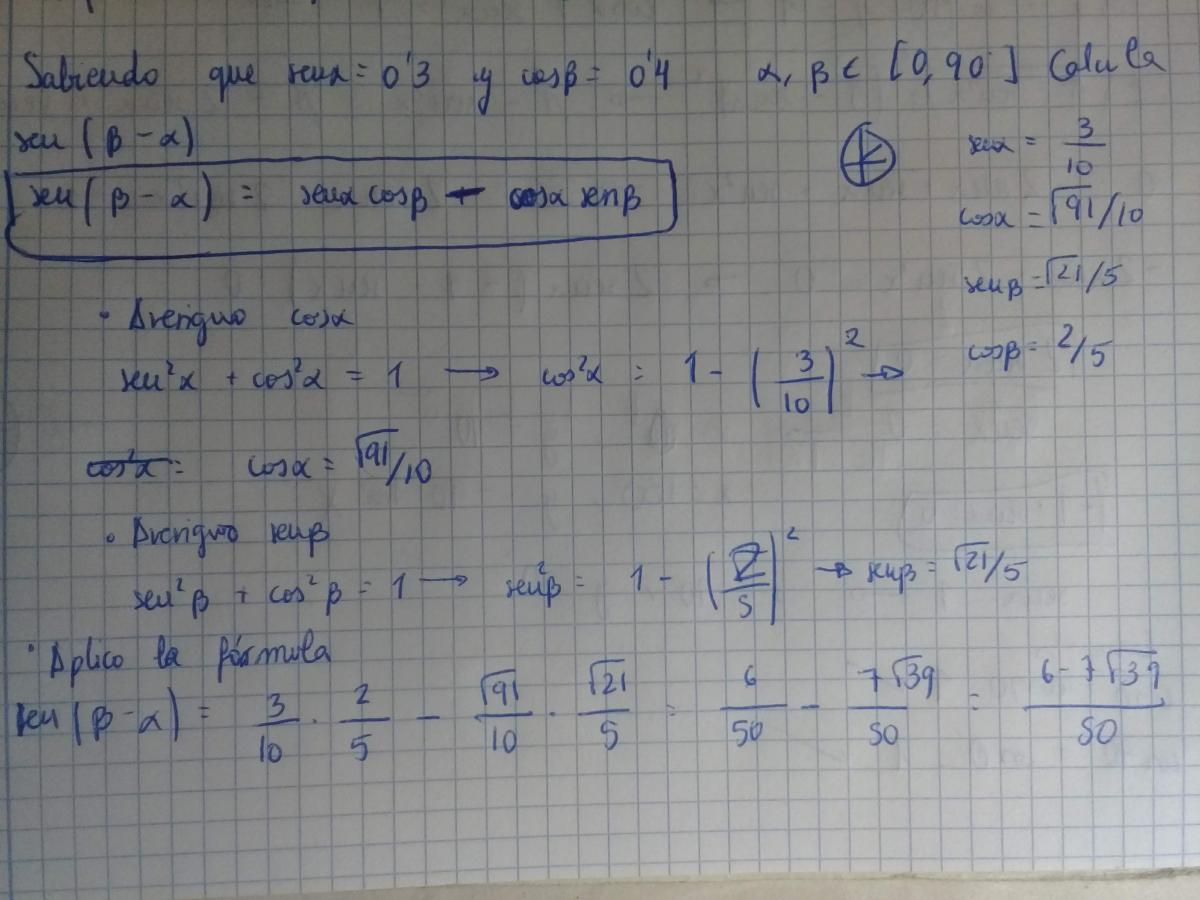 Sabiendo que senα = 0'3 y cosβ = 0'4 α, β ∈ [0, 90°] Calcula
sen (β - α)
sen (β - α) = senα cosβ - cosα senβ
senα = 3/10
cosα = √91/10
senβ = √21/5
cosβ = 2/5
· Averiguo cosα
sen²α + cos²α = 1 → cos²α = 1 - (3/10)² →
cos²α = cosα = √91/10
· Averiguo senβ
sen²β + cos²β = 1 → sen²β = 1 - (2/5)² → senβ = √21/5
· Aplico la fórmula
sen (β - α) = 3/10 · 2/5 - √91/10 · √21/5 = 6/50 - 7√39/50 = 6 - 7√39/50